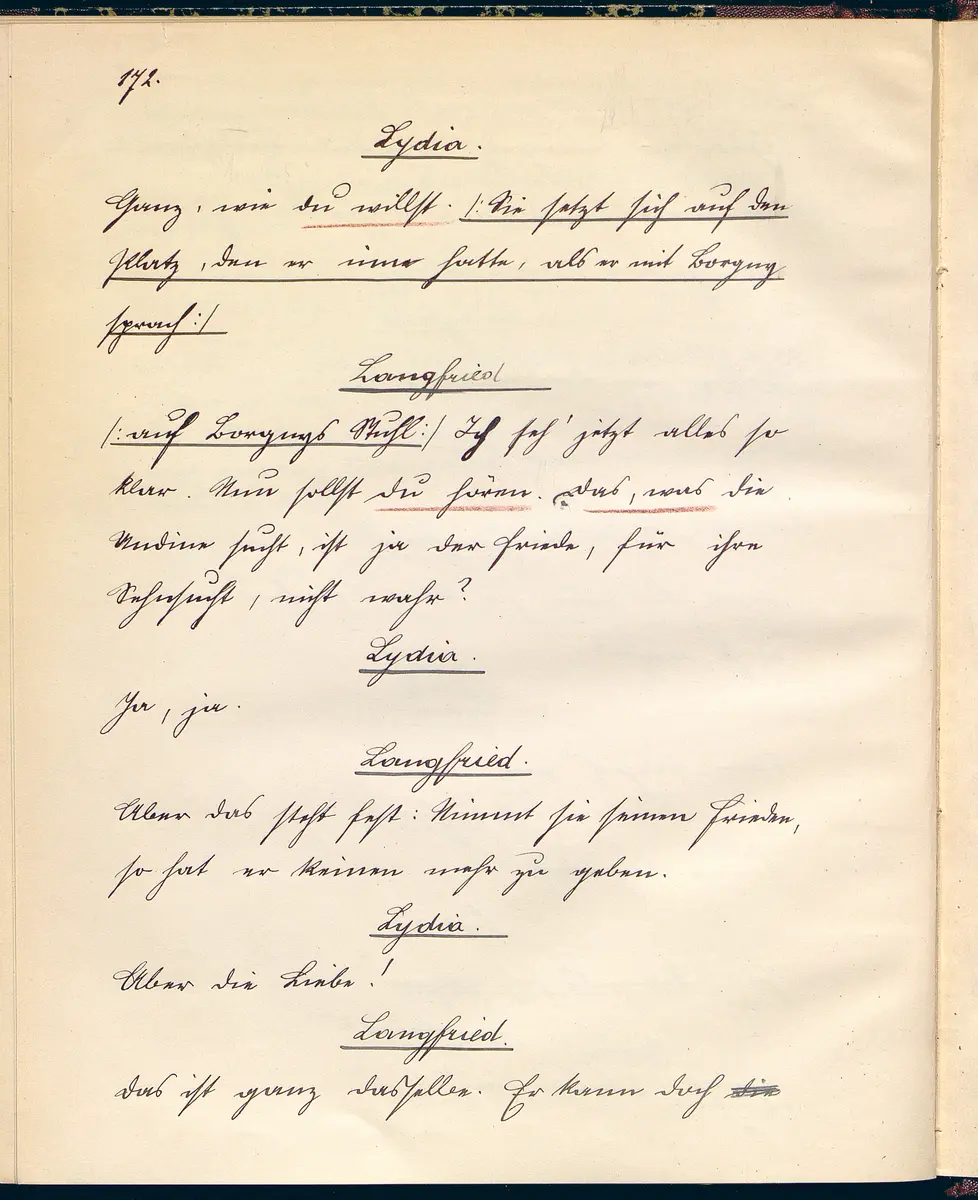 172.
Lydia.
Ganz, wie du willst. /: Sie setzt sich auf den
Platz, den er inne hatte, als er mit Borgny
sprach :/
Langfried
/: auf Borgnys Stuhl :/ Ich seh' jetzt alles so
klar. Nun sollst du hören. Das, was die
Undine sucht, ist ja der Friede, für ihre
Sehnsucht, nicht wahr?
Lydia.
Ja, ja.
Langfried.
Aber das steht fest: Nimmt sie seinen Frieden,
so hat er keinen mehr zu geben.
Lydia.
Aber die Liebe!
Langfried.
Das ist ganz dasselbe. Er kann doch die